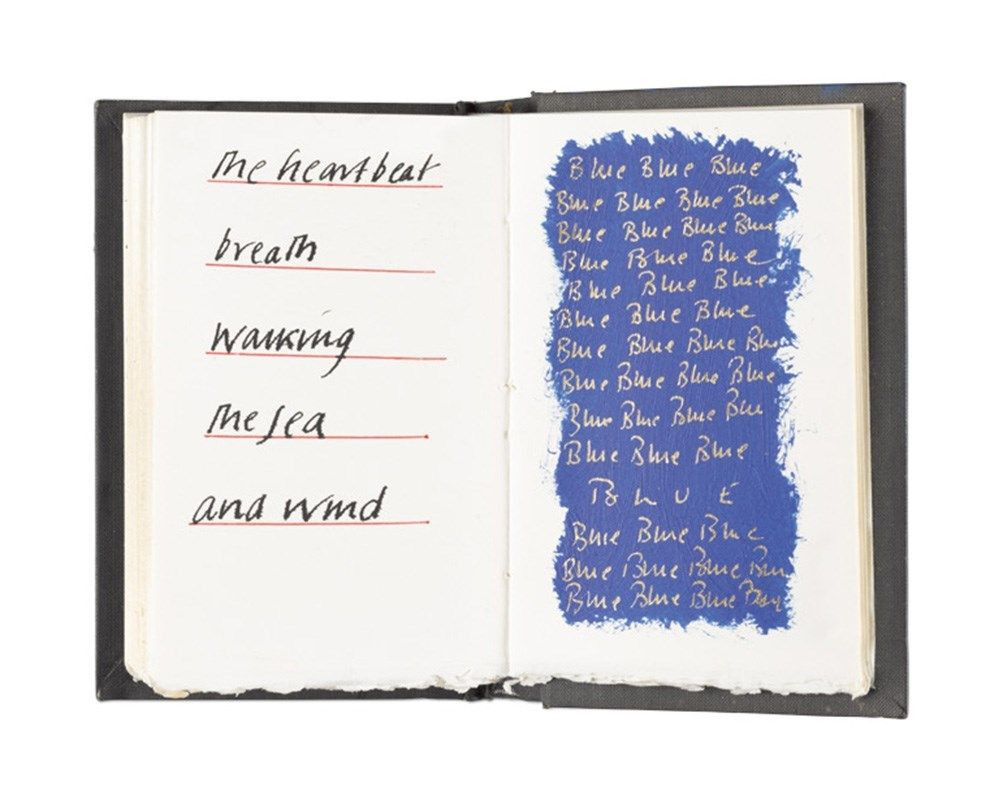 The heartbeat
breath
Walking
The Sea
and Wind
Blue Blue Blue
Blue Blue Blue Blue
Blue Blue Blue Blue
Blue Blue Blue
Blue Blue Blue
Blue Blue Blue
Blue Blue Blue Blue
Blue Blue Blue Blue
Blue Blue Blue Blue
Blue Blue Blue
B L U E
Blue Blue Blue
Blue Blue Blue Blue
Blue Blue Blue